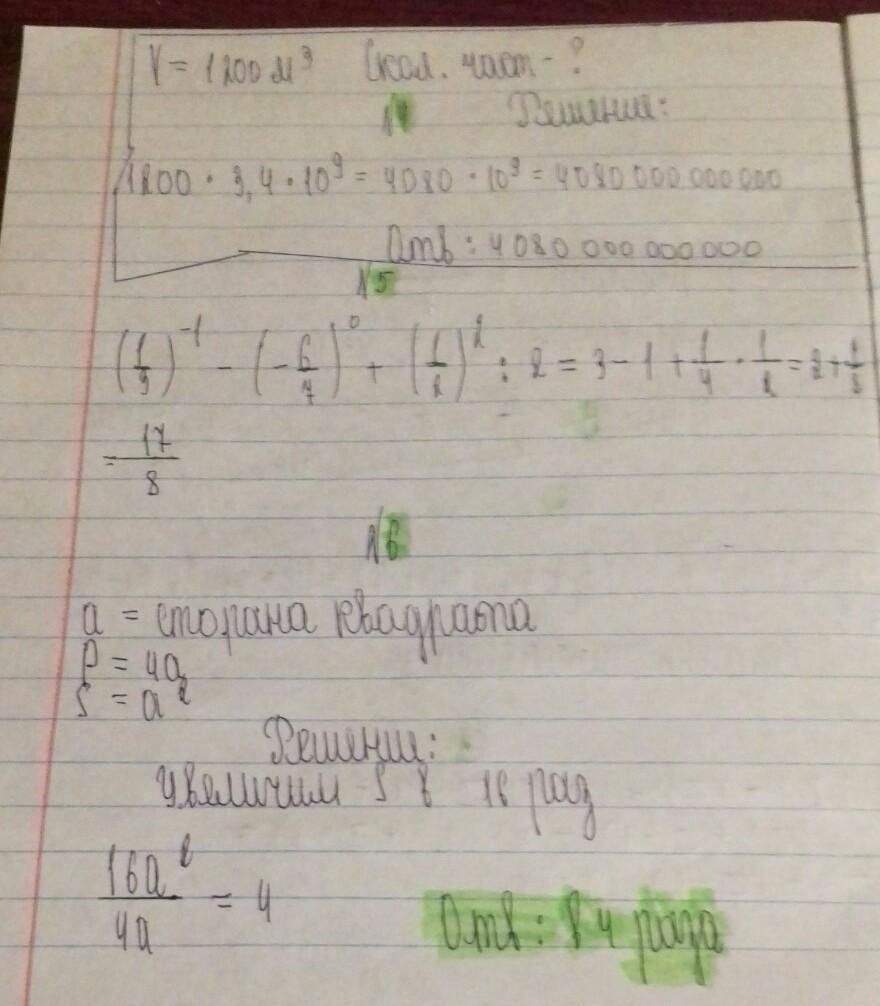 V = 1200 м³ Скол. част - ?
№4 Решение:
1200 · 3,4 · 10⁹ = 4080 · 10⁹ = 4080 000 000 000
Отв : 4 080 000 000 000
№5
(1/3)⁻¹ - (-6/7)⁰ + (1/2)² : 2 = 3 - 1 + 1/4 · 1/2 = 2 + 1/8
= 17/8
№6
a = сторана квадрата
P = 4a
S = a²
Решение:
Увеличим S в 16 раз
16a²/4a = 4 Отв : в 4 раза